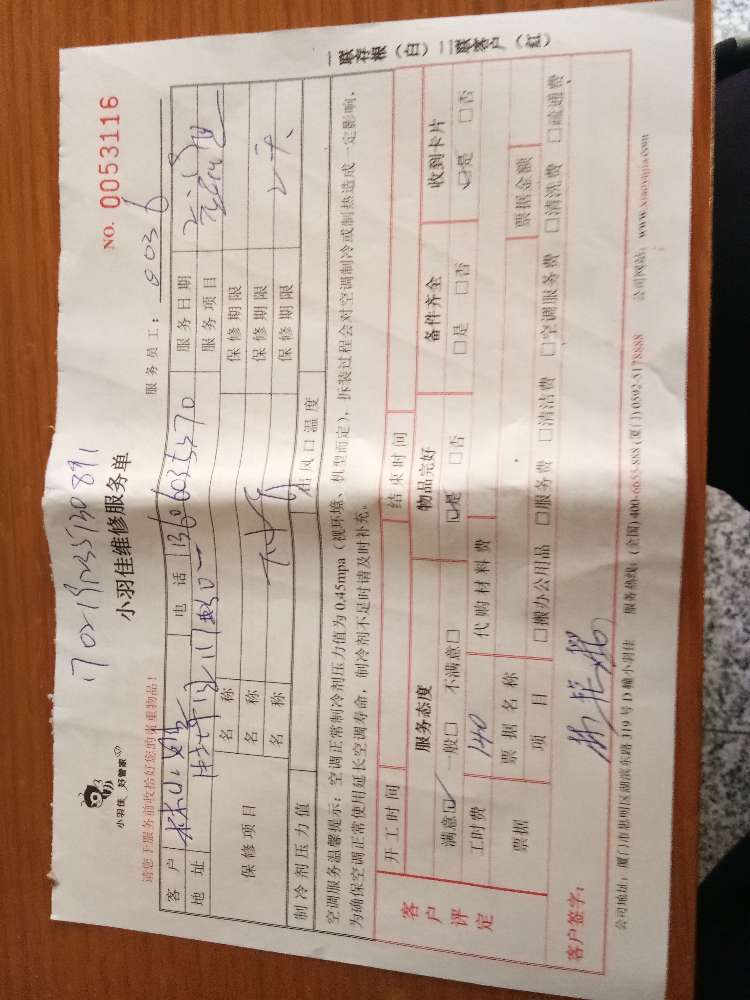 小羽佳 好管家
NO. 0053116
小羽佳维修服务单
服务员工：
请您于服务前收拾好您的贵重物品！
客户 电话 服务日期
地址 服务项目
保修项目
名称 保修期限
名称 保修期限
名称 保修期限
制冷剂压力值 出风口温度
空调服务温馨提示：空调正常制冷剂压力值为 0.45mpa（视环境、机型而定），拆装过程会对空调制冷或制热造成一定影响，
为确保空调正常使用延长空调寿命，制冷剂不足时请及时补充。
客户评定
开工时间 结束时间
服务态度 物品完好 备件齐全 收到卡片
满意☑ 一般□ 不满意□ ☑是 □否 □是 □否 ☑是 □否
工时费 140 代购材料费
票据 票据名称 票据金额
项目 □搬办公用品 □服务费 □清洁费 □空调服务费 □清洗费 □疏通费
客户签字：
公司地址：厦门市思明区湖滨东路 319 号 D 幢小羽佳 服务热线：(全国)400-6655-888 (厦门)0592-5178888 公司网站：www.xiaoyujia.com
一联存根（白）二联客户（红）